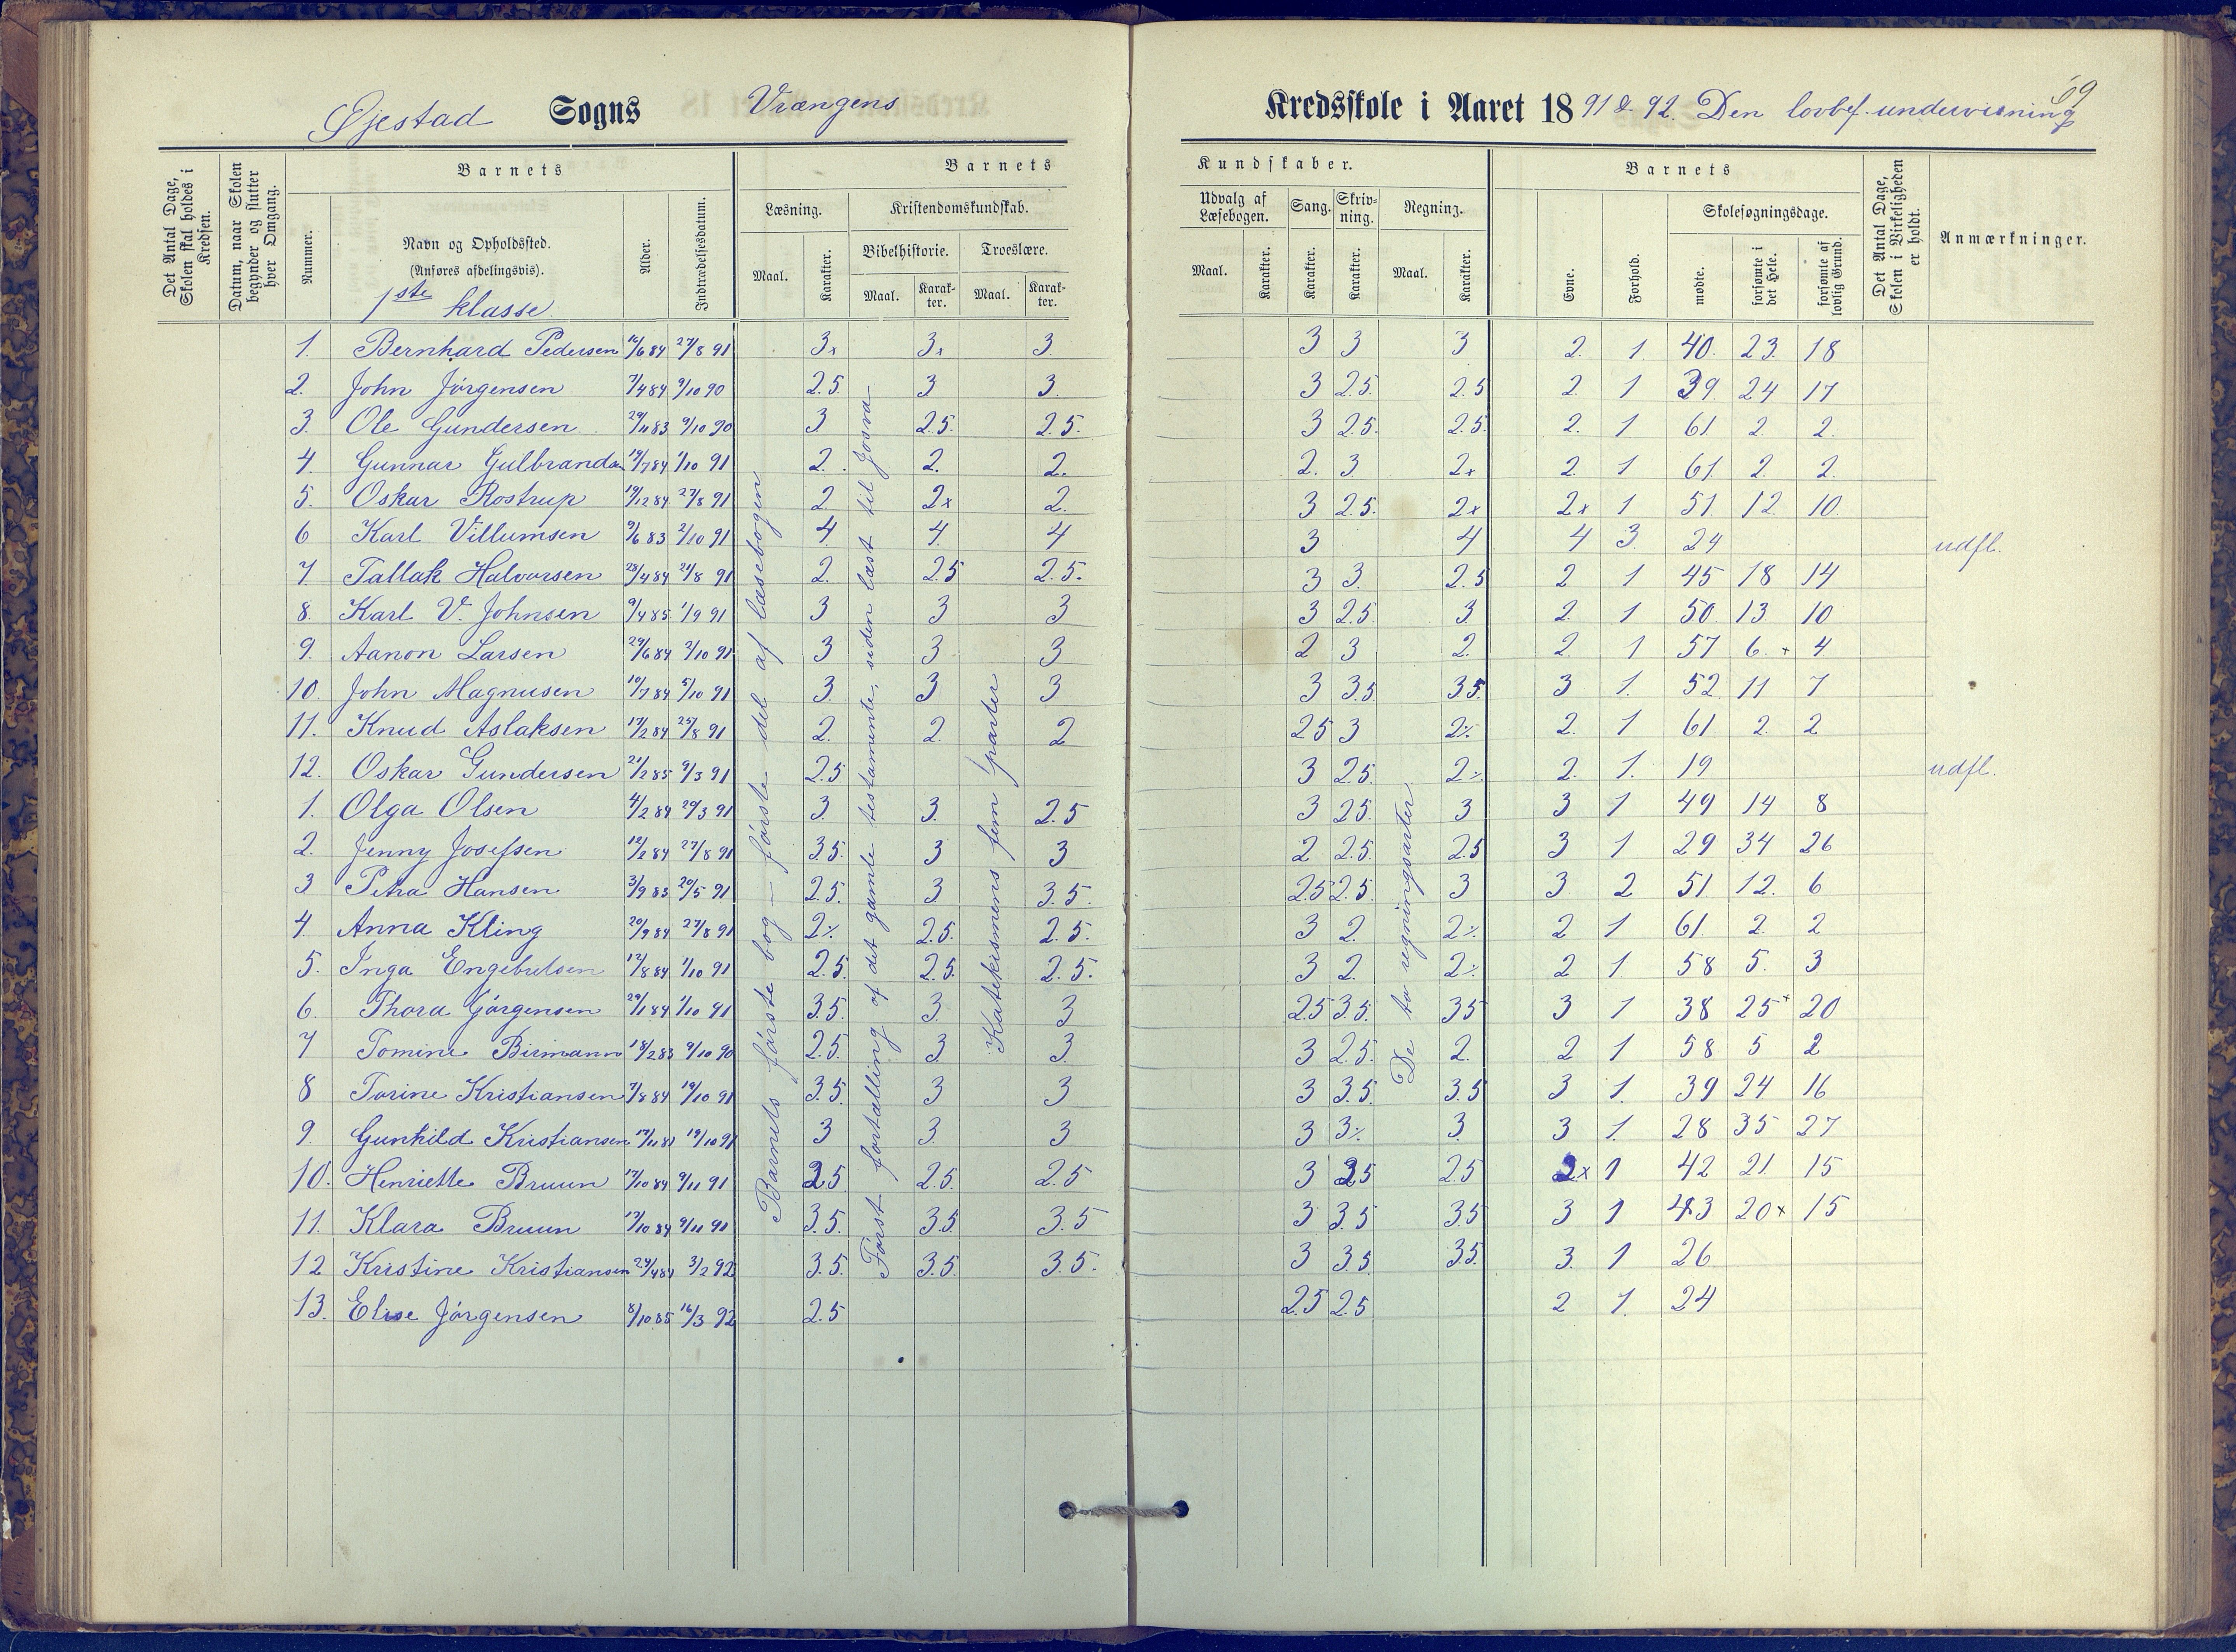 Øjestad Sogns Vrængens Kredsskole i Aaret 18 91 & 92. Den lovbef. undervisning 69
Det Antal Dage, Skolen skal holdes i Kredsen.
Datum, naar Skolen begynder og slutter hver Omgang.
Barnets
Nummer.
Navn og Opholdssted.
(Anføres afdelingsvis).
1ste klasse
Alder.
Indtrædelsesdatum.
Barnets Kundskaber.
Læsning. Maal. Karakter.
Kristendomskundskab.
Bibelhistorie. Maal. Karakter.
Troeslære. Maal. Karakter.
Udvalg af Læsebogen. Maal. Karakter.
Sang. Karakter.
Skrivning. Karakter.
Regning. Maal. Karakter.
Barnets
Evne. Forhold.
Skolesøgningsdage.
mødte. forsømte i det Hele. forsømte af lovlig Grund.
Det Antal Dage, Skolen i Virkeligheden er holdt.
Anmærkninger.
1. Bernhard Pedersen 16/6 84 27/8 91 3x 3x 3. 3 3 3 2. 1. 40. 23. 18
2. John Jörgensen 7/4 84 9/10 90 2.5. 3 3. 3 2.5. 2.5 2. 1 39. 24 17
3. Ole Gundersen 29/11 83 9/10 90 3. 2.5. 2.5. 3 2.5. 2.5. 2. 1 61. 2. 2.
4. Gunnar Gulbrandsen 19/7 84 1/10 91 2. 2. 2. 2. 3. 2x 2. 1 61. 2. 2.
5. Oskar Rostrup 19/12 84 27/8 91 2. 2x 2. 3 2.5. 2x 2x 1 51. 12. 10.
6 Karl Villumsen 9/6 83 2/10 91 4. 4. 4 3 4 4 3. 24 udfl.
7 Tallak Halvorsen 23/4 84 24/8 91 2. 2.5 2.5. 3 3. 2.5 2 1 45 18 14
8. Karl V. Johnsen 9/4 85 1/9 91 3 3 3 3 2.5. 3. 2. 1 50. 13. 10
9. Aanon Larsen 29/6 84 2/10 91 3 3 3 2 3 2. 2. 1 57 6. + 4
10. John Magnusen 10/7 84 5/10 91 3. 3 3 3 3.5. 3.5. 3 1. 52. 11 7
11. Knud Aslaksen 17/2 84 25/8 91 2. 2. 2 2.5 3 2⁒ 2. 1 61 2. 2
12. Oskar Gundersen 21/2 85 9/3 91 2.5 3 2.5. 2⁒ 2. 1. 19 udfl.
1. Olga Olsen 4/2 84 29/3 91 3. 3. 2.5 3 2.5. 3 3 1 49 14 8
2. Jenny Josefsen 12/2 84 27/8 91 3.5. 3 3 2 2.5. 2.5 3 1 29 34 26
3 Petra Hansen 3/9 83 20/5 91 2.5. 3 3.5. 2.5 2.5. 3 3 2 51. 12. 6
4. Anna Kling 20/9 84 27/8 91 2⁒ 2.5. 2.5. 3 2. 2⁒ 2 1 61. 2. 2
5. Inga Engebretsen 12/8 84 1/10 91 2.5. 2.5. 2.5. 3 2. 2⁒ 2 1. 58 5. 3
6. Thora Jörgensen 29/1 84 1/10 91 3.5. 3. 3 2.5 3.5. 3.5 3 1 38 25+ 20
7 Tomine Birmann 18/2 83 9/10 90 2.5. 3 3. 3 2.5. 2. 2 1. 58 5 2
8 Torine Kristiansen 7/8 84 19/10 91 3.5. 3 3 3 3.5. 3.5 3 1. 39 24 16
9. Gunhild Kristiansen 17/11 81 19/10 91 3 3. 3 3 3⁒ 3. 3 1. 28 35 27
10. Henriette Bruun 17/10 84 9/11 91 2.5 2.5. 2.5 3 2.5 2.5 2x 1 42 21 15
11. Klara Bruun 17/10 84 9/11 91 3.5. 3.5 3.5 3 3.5 3.5 3 1 43 20x 15
12 Kristine Kristiansen 24/4 84 3/2 92 3.5. 3.5. 3.5. 3 3.5. 3.5. 3. 1 26
13. Elise Jörgensen 8/10 85 16/3 92 2.5 2.5 2.5 2 1. 24
Barnets förste bog – förste del af læsebogen
Först fortælling af det gamle testamente, siden læst til Josva
Katekismens fem parter
De to regningsarter